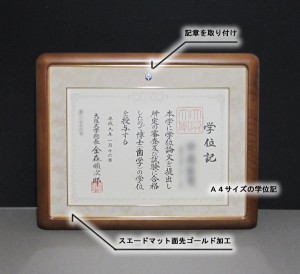 記章を取り付け
学位記
本学に学位論文を提出し
所定の審査及び試験に合格
したので博士(歯学)の学位
を授与する
大阪大学総長 金森順次郎
A4サイズの学位記
スエードマット面先ゴールド加工